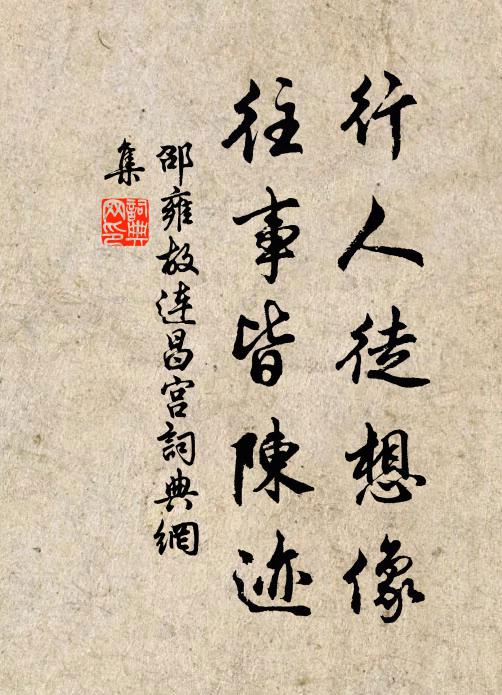 行人徒想像
往事皆陳迹
邵雍故连昌宫詞典網
集
詞典網印